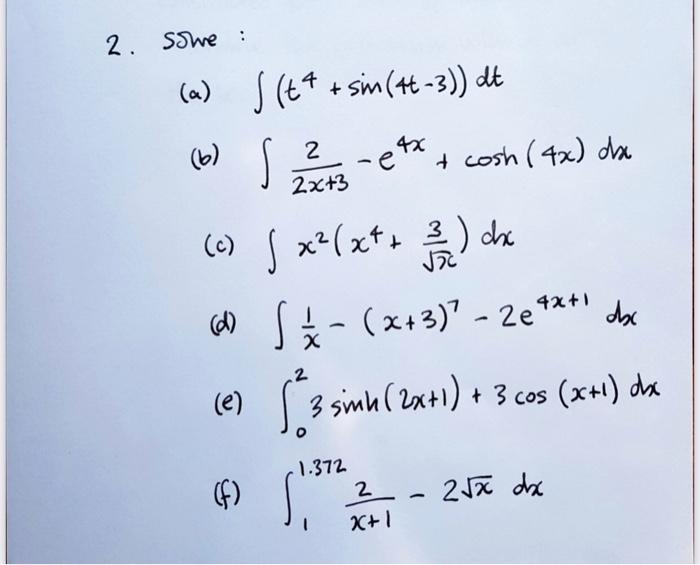 2. Solve :
(a) ∫ (t⁴ + sin(4t-3)) dt
(b) ∫ 2/(2x+3) - e^(4x) + cosh(4x) dx
(c) ∫ x²(x⁴ + 3/√x) dx
(d) ∫ 1/x - (x+3)⁷ - 2e^(4x+1) dx
(e) ∫₀² 3 sinh(2x+1) + 3 cos (x+1) dx
(f) ∫₁^1.372 2/(x+1) - 2√x dx